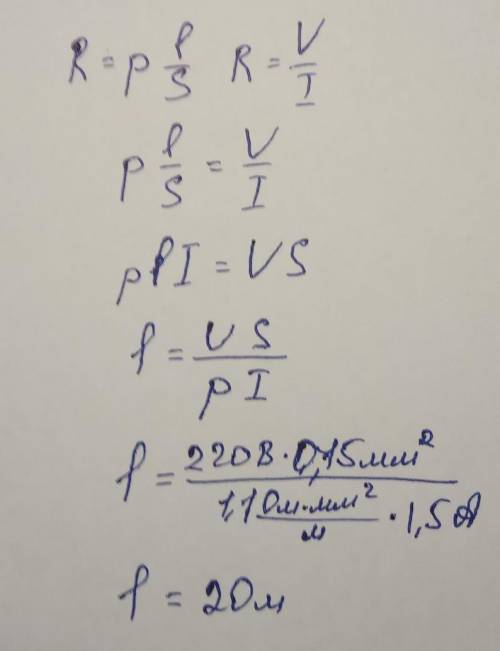 R = p l/S   R = V/I
p l/S = V/I
plI = VS
l = VS/pI
l = 220В·0,15мм²/(1,1 Ом·мм²/м · 1,5А)
l = 20м